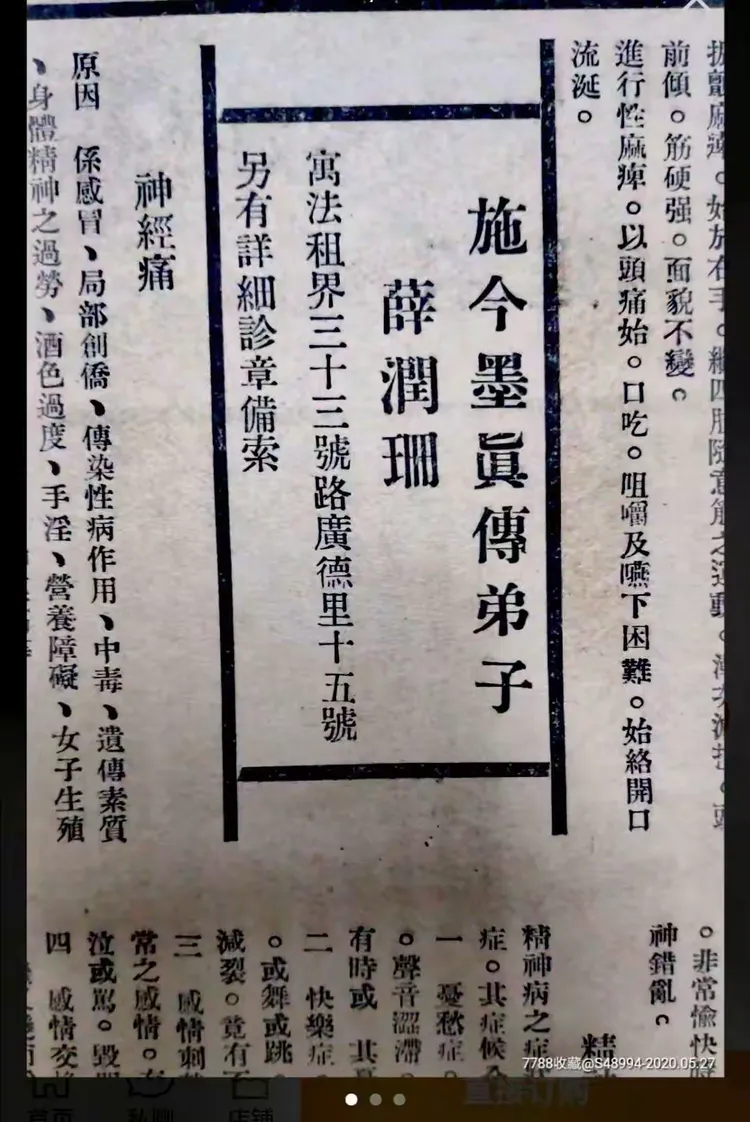 前傾。筋硬强。面貌不變。
進行性麻痺。以頭痛始。口吃。咀嚼及嚥下困難。始絡開口
流涎。
施今墨眞傳弟子
薛潤珊
寓法租界三十三號路廣德里十五號
另有詳細診章備索
神經痛
原因　係感冒、局部創僑、傳染性病作用、中毒、遺傳素質
、身體精神之過勞、酒色過度、手淫、營養障礙、女子生殖
。非常愉快
神錯亂。
精神病之症
症。其症候
一　憂愁症。
。聲音澀滯。
有時或　其
二　快樂症
。或舞或跳。
減裂。竟有
三　感情刺
常之感情。
泣或罵。毀
四　感情交
7788收藏@S48994-2020.05.27
首页
私聊
店铺